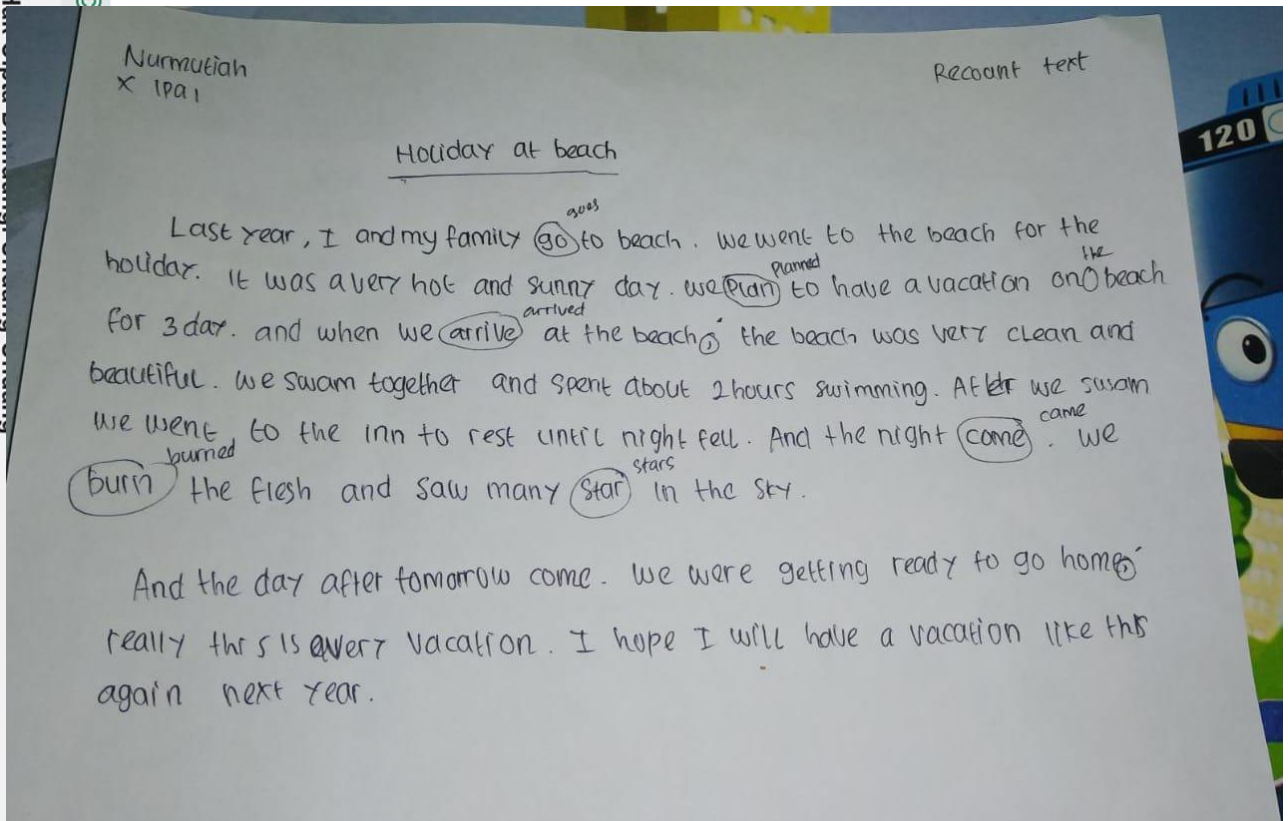 Nurmutiah
X IPA 1
Recount text
Holiday at beach
goes
Last year, I and my family go to beach. we went to the beach for the
planned the
holiday. It was a very hot and sunny day. we plan to have a vacation on beach
arrived
for 3 day. and when we arrive at the beach the beach was very clean and
beautiful. we swam together and spent about 2 hours swimming. After we swam
came
we went to the inn to rest until night fell. And the night come. we
burned stars
burn the flesh and saw many star in the sky.
And the day after tomorrow come. we were getting ready to go home
really this is avery vacation. I hope I will have a vacation like this
again next year.
120